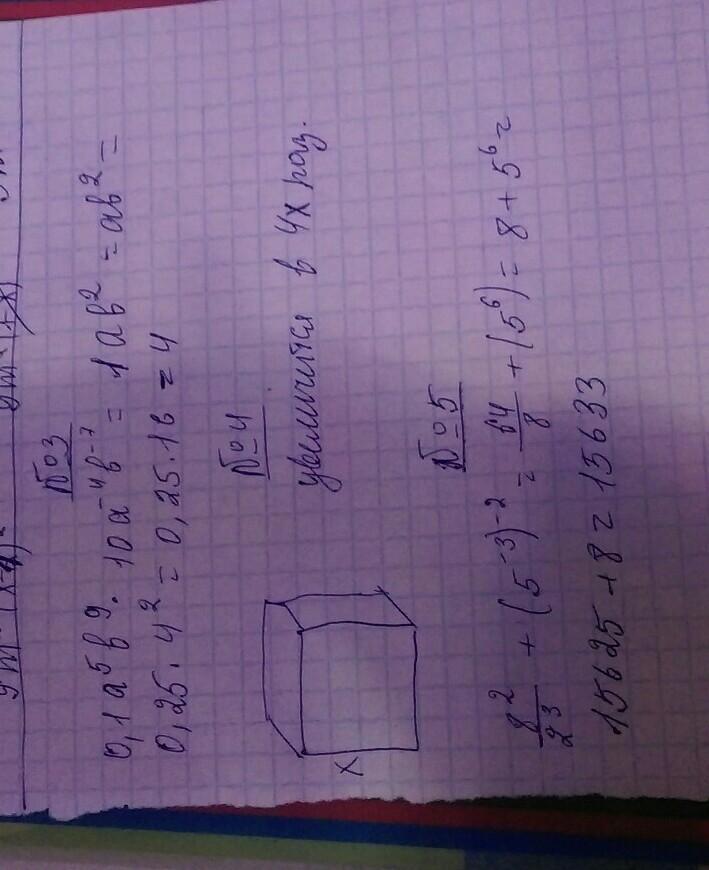 №3
0,1a⁵b⁹ · 10a⁻⁴b⁻⁷ = 1ab² = ab² =
0,25 · 4² = 0,25 · 16 = 4
№4
увеличится в 4х раз.
x
№5
8²/2³ + (5⁻³)⁻² = 64/8 + (5⁶) = 8 + 5⁶ =
15625 + 8 = 15633